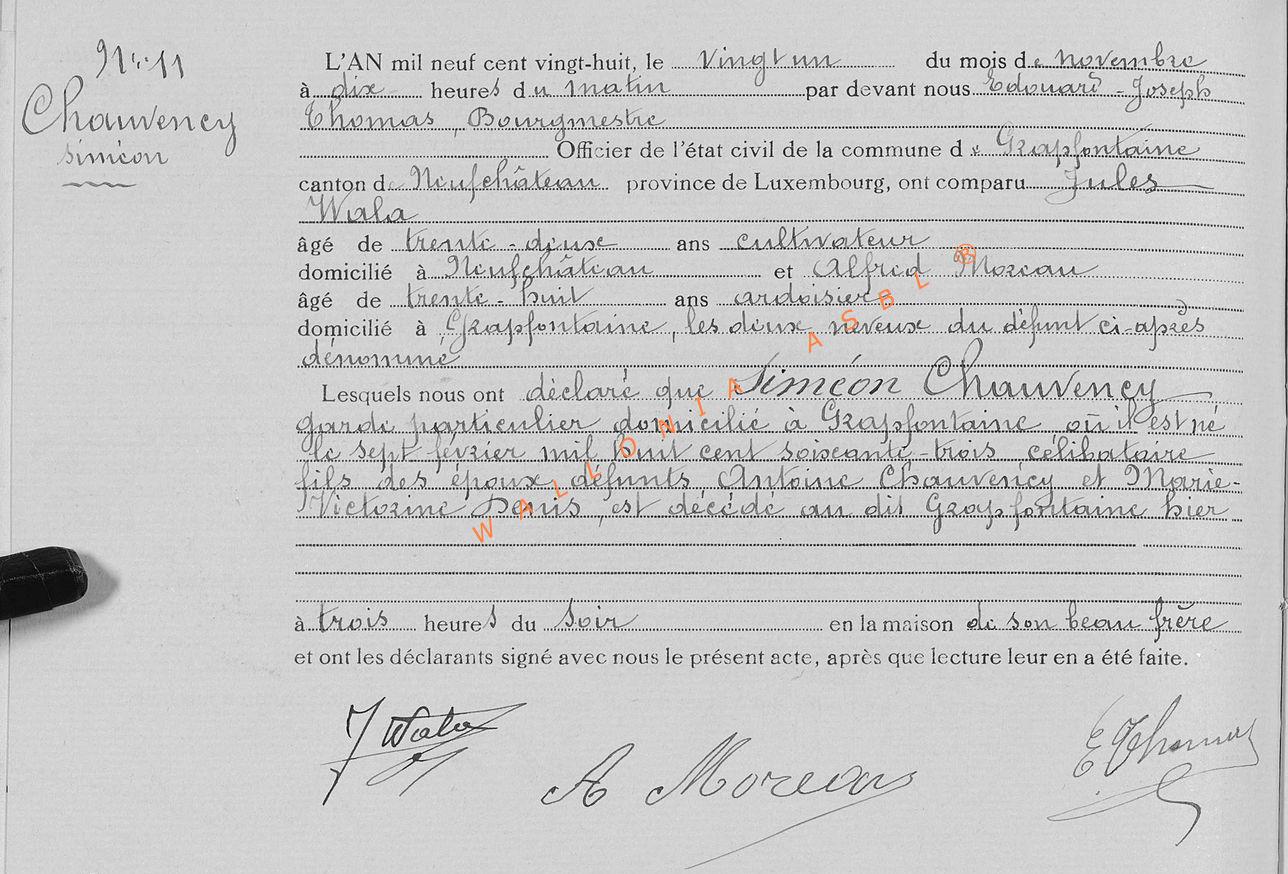 N° 11
Chauvency
Siméon
L'AN mil neuf cent vingt-huit, le vingt un du mois de novembre
à dix heures du matin par devant nous Edouard-Joseph
Thomas, Bourgmestre
Officier de l'état civil de la commune de Grapfontaine
canton de Neufchâteau province de Luxembourg, ont comparu Jules
Wala
âgé de trente-deux ans cultivateur
domicilié à Neufchâteau et Alfred Moreau
âgé de trente-huit ans ardoisier
domicilié à Grapfontaine, les deux neveux du défunt ci-après
dénommé
Lesquels nous ont déclaré que Siméon Chauvency
garde particulier domicilié à Grapfontaine où il est né
le sept février mil huit cent soixante-trois célibataire
fils des époux défunts Antoine Chauvency et Marie-
Victorine Denis, est décédé au dit Grapfontaine hier
à trois heures du soir en la maison de son beau frère
et ont les déclarants signé avec nous le présent acte, après que lecture leur en a été faite.
J Wala
A Moreau
E Thomas
WALLONIA ASBL ®